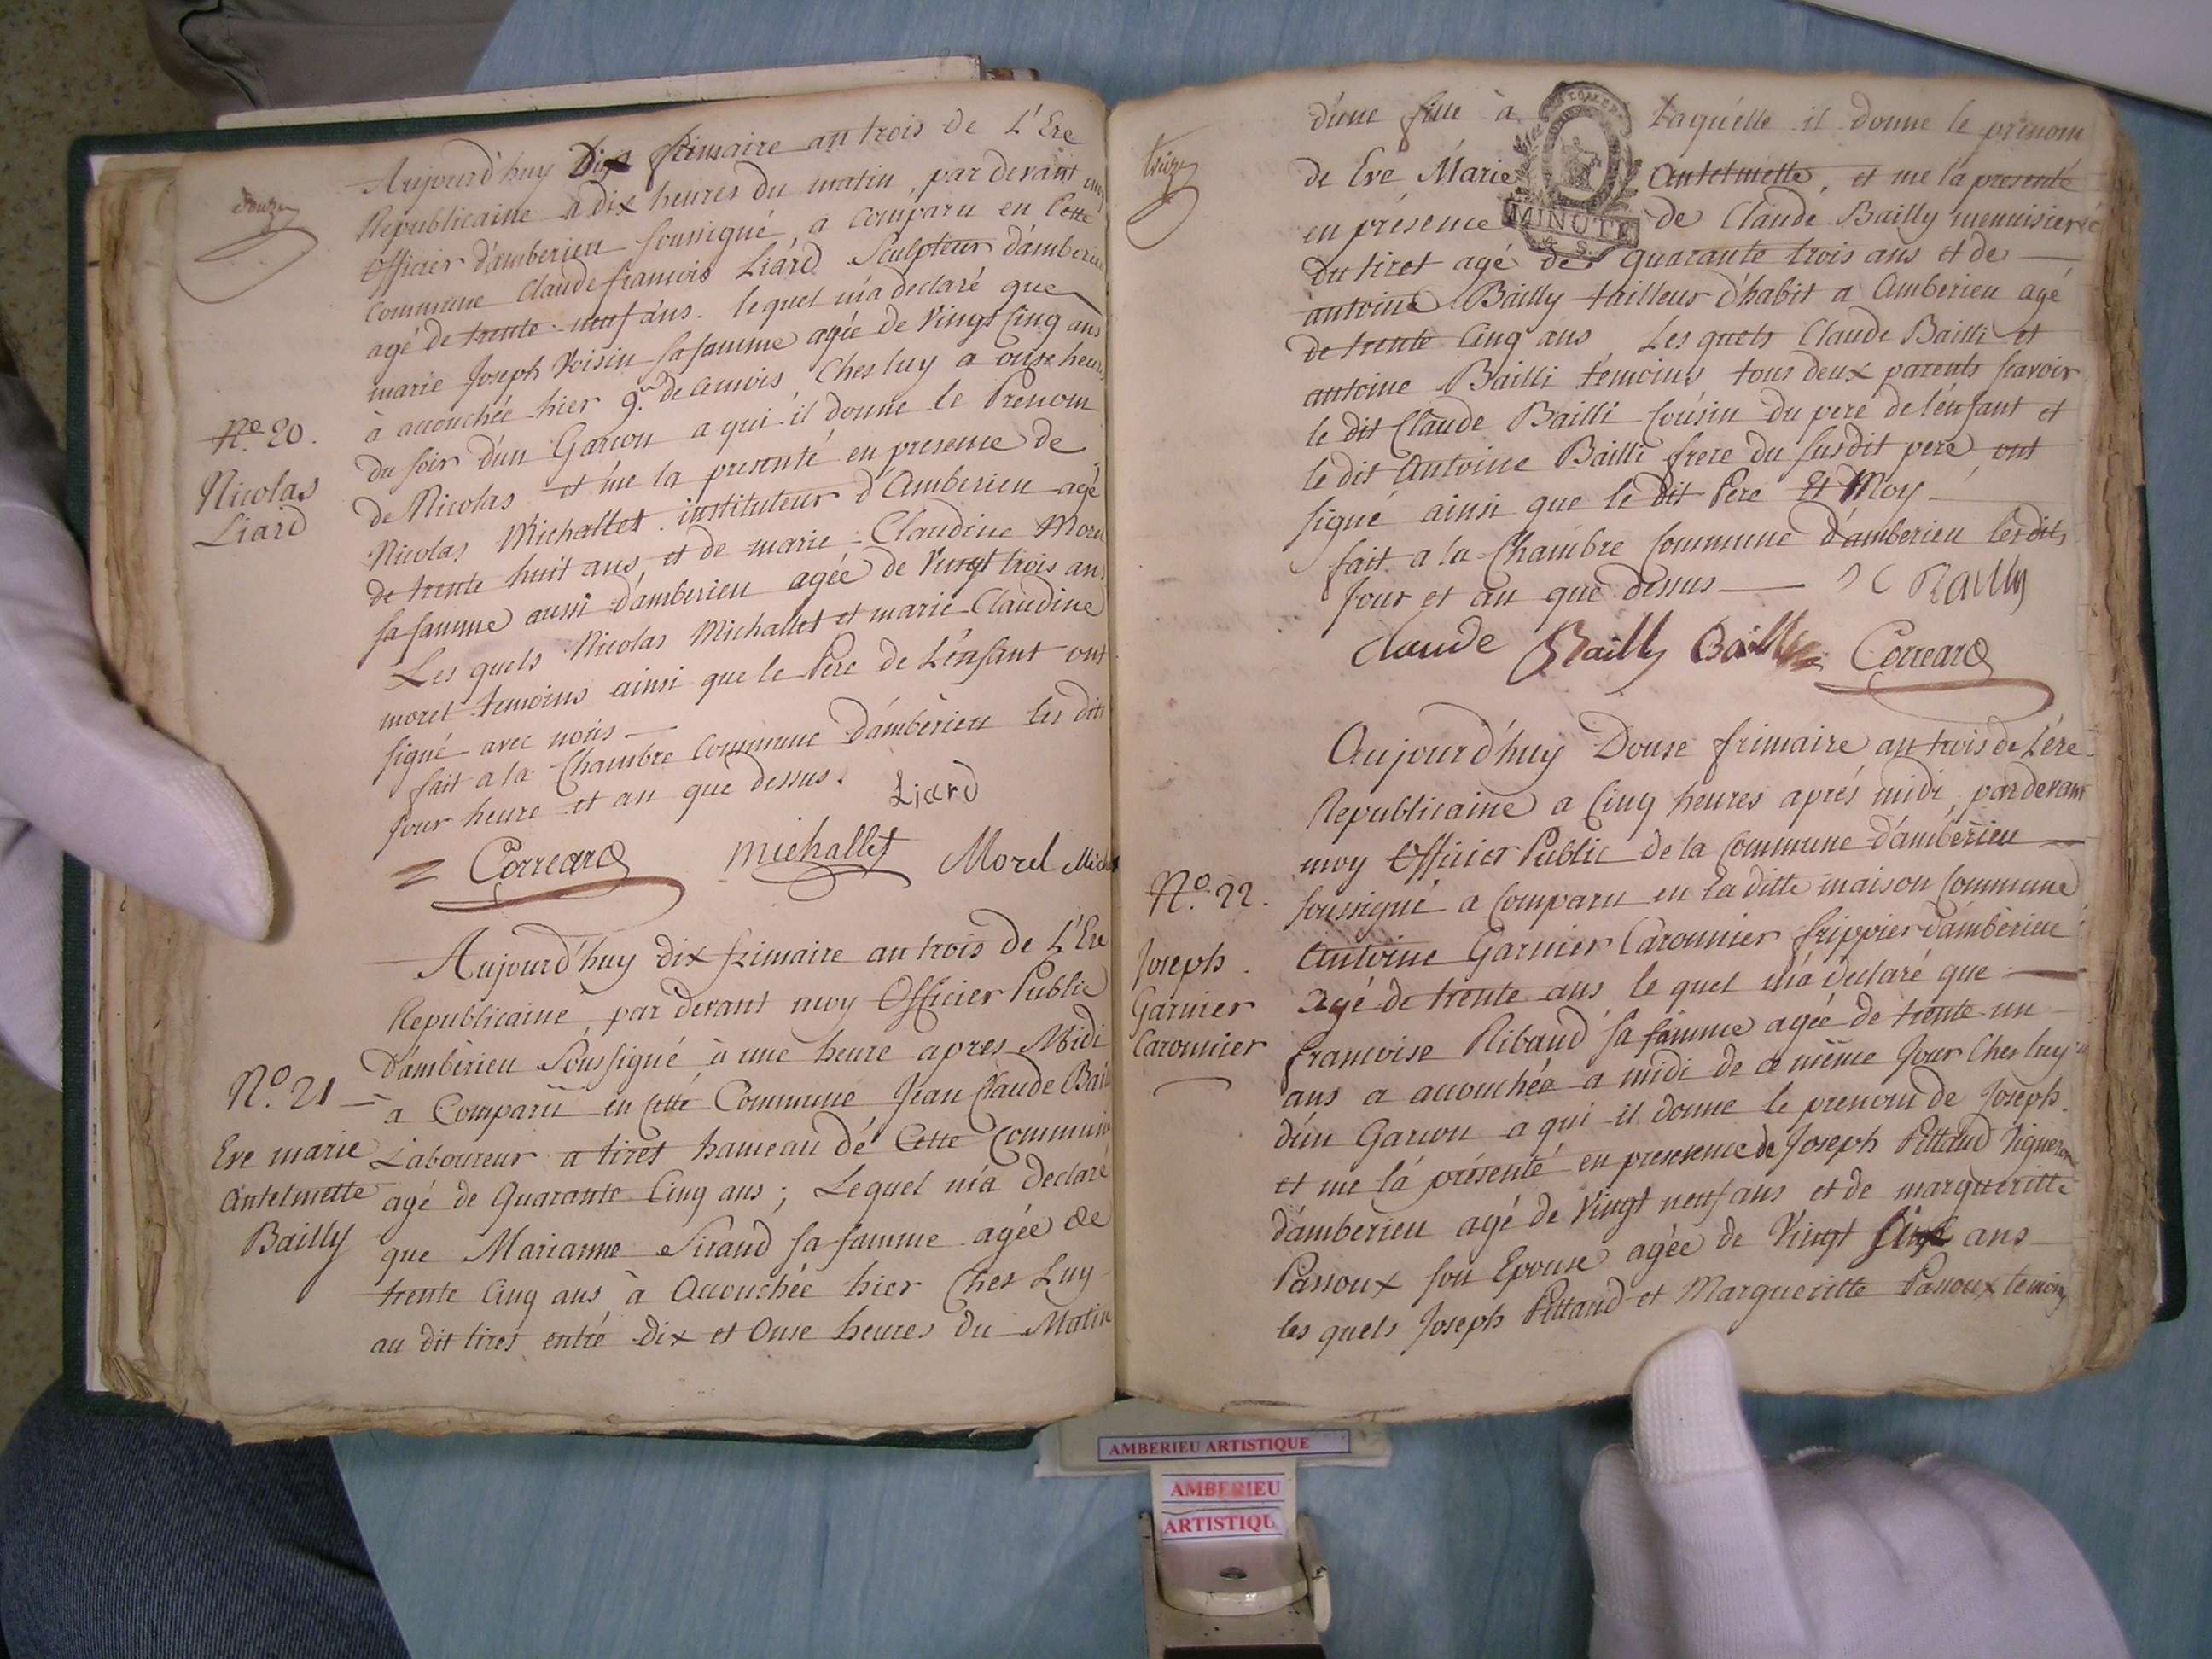 douze
Aujourd'huy Dix frimaire an trois de L'Ere
Republicaine a dix heures du matin, par devant moy
Officier d'amberieu soussigné, a comparu en Cette
Commune Claude francois Liard Sculpteur d'amberieu
agé de trente-neuf ans. lequel m'a declaré que
marie Joseph Voisin sa famme agée de Vingt Cinq ans
à accouchée hier 9.e de ce mois, Ches luy a onze heures
du soir d'un Garcon a qui il donne le Prenom
de Nicolas et me la presenté en presence de
Nicolas Michallet instituteur d'Amberieu agé
de trente huit ans et de marie Claudine Morel
sa famme aussi d'amberieu agée de Vingt trois ans
Les quels Nicolas Michallet et marie-Claudine
morel temoins ainsi que le Pere de L'enfant ont
signé avec nous —
fait a la Chambre Commune d'amberieu les dits
Jour heure et an que dessus.
Liard
Correard Michallet Morel
N.o 20.
Nicolas
Liard
Aujourd'huy dix frimaire an trois de L'Ere
Republicaine, par devant moy Officier Public
d'amberieu Soussigné à une heure apres Midi
a Comparu en Cette Commune Jean Claude Bailly
Laboureur a tiret hameau de Cette Commune
agé de Quarante Cinq ans; Lequel m'a Declaré
que Marianne Siraud sa famme agée de
trente Cinq ans à Accouchée hier Ches Luy
au dit tiret entre Dix et Onse heures Du Matin
N.o 21 —
Eve marie
Antelmette
Bailly
treize
d'une fille à laquelle il donne le prenom
de Eve Marie Antelmette, et me la presenté
en présence de Claude Bailly menuisier
MINUTE
du tiret agé de quarante trois ans et de —
antoine Bailly tailleur d'habit a Amberieu agé
de trente Cinq ans Les quels Claude Bailli et
antoine Bailli témoins tous deux parents scavoir
le dit Claude Bailli cousin du pere de l'enfant et
le dit Antoine Bailli frere du susdit pere ont
signé ainsi que le dit Pere Et Moy —
fait a la Chambre Commune d'amberieu les dits
Jour et an que dessus — J C Bailly
Claude Bailly Bailly Correard
Aujourd'huy Douse frimaire an trois de L'ére
Republicaine a Cinq heures aprés midi, par devant
moy Officier Public de la Commune d'amberieu —
soussigné a Comparu en la ditte maison Commune
Antoine Garnier Caronnier frippier d'amberieu
agé de trente ans le quel m'a declaré que —
francoise Ribaud sa famme agée de trente un
ans a accouchée a midi de ce même Jour Ches luy
d'un Garcon a qui il donne le prenom de Joseph
et me l'a présenté en presence de Joseph Pittaud Vigneron
d'amberieu agé de Vingt neuf ans et de margueritte
Passoux son Epouse agée de Vingt ans
les quels Joseph Pittaud et Margueritte Passoux temoins
N.o 22.
Joseph
Garnier
Caronnier
AMBERIEU ARTISTIQUE
AMBERIEU
ARTISTIQU